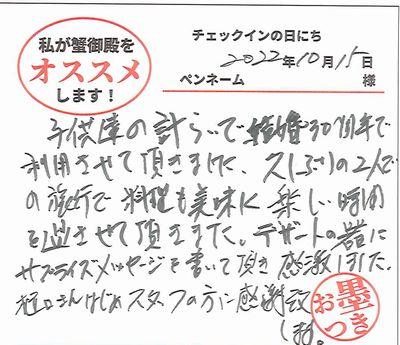 私が蟹御殿を
オススメ
します！
チェックインの日にち
2022年10月15日
ペンネーム
様
子供達の計らいで結婚30周年で
利用させて頂きました、久しぶりの2人で
の旅行で料理も美味に楽しい時間
を過させて頂きました。デザートの器に
サプライズメッセージを書いて頂き感激しました、
樋口さんはじめスタッフの方に感謝致
します。
お墨つき